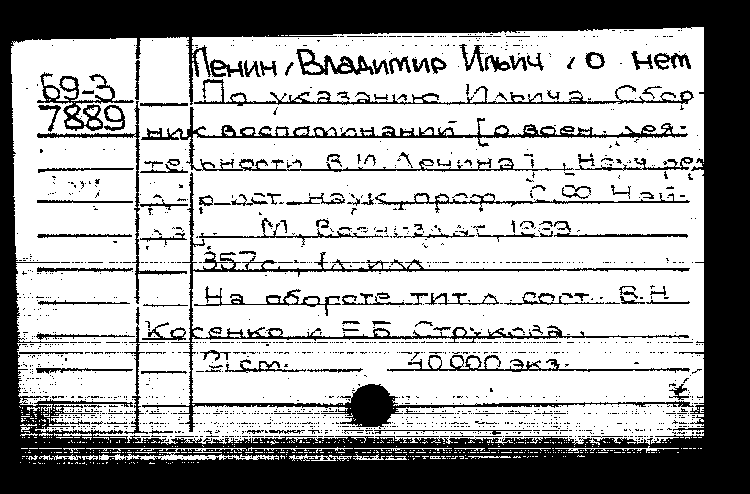 Ленин, Владимир Ильич, о нем
Б9-3
По указанию Ильича. Сбор-
7889
ник воспоминаний [о воен. дея-
тельности В.И.Ленина]. [Науч. ред.
д-р ист. наук, проф. С.Ф. Най-
да]. М., Воениздат, 1969.
357 с.; 1 л. илл.
На обороте тит. л. сост. В.Н.
Косенко и Е.Б. Струкова.
21 см. 40 000 экз.